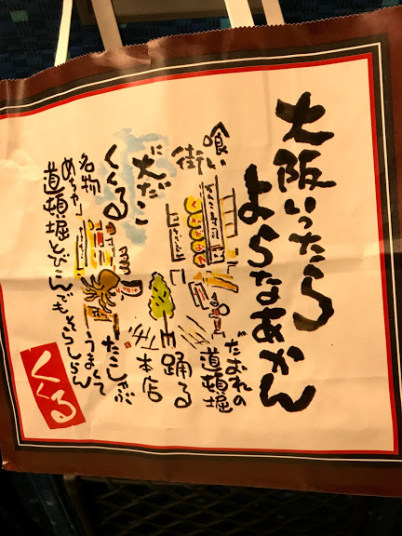 大阪いったら
よらなあかん
喰い
だおれの
街
道頓堀
に踊る
大だこ
本店
くくる
名物
たこしゃぶ
めちゃ
うまくて
道頓堀とびこんでもそらしらん
くくる